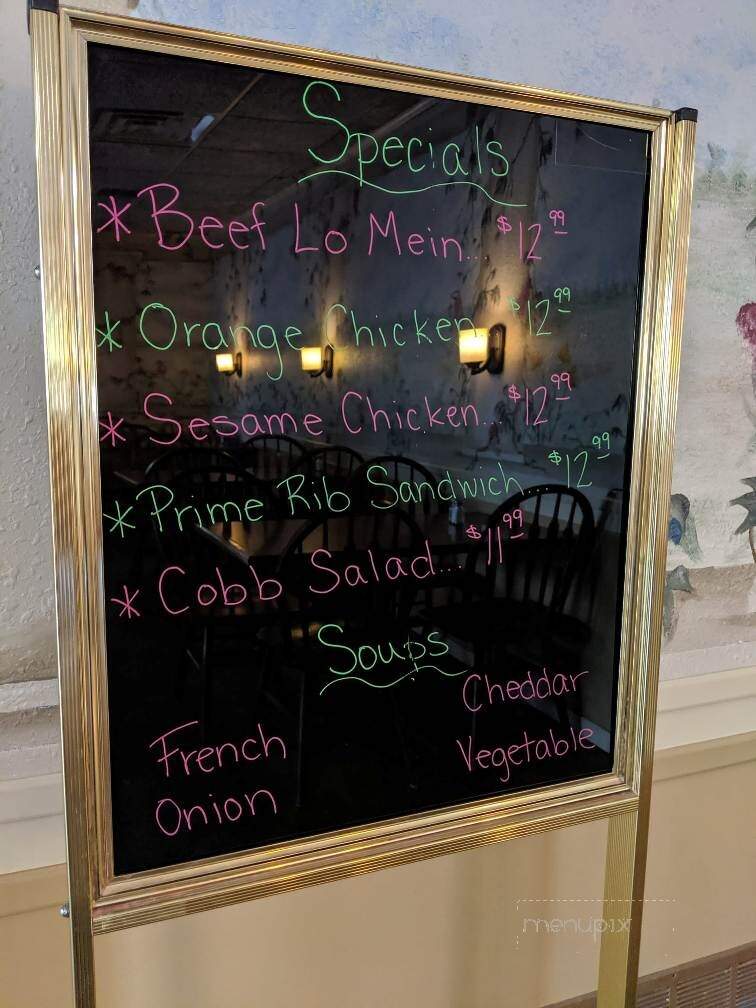 Specials
* Beef Lo Mein... $12.99
* Orange Chicken $12.99
* Sesame Chicken... $12.99
* Prime Rib Sandwich... $12.99
* Cobb Salad... $11.99
Soups
French
Onion
Cheddar
Vegetable
menupix